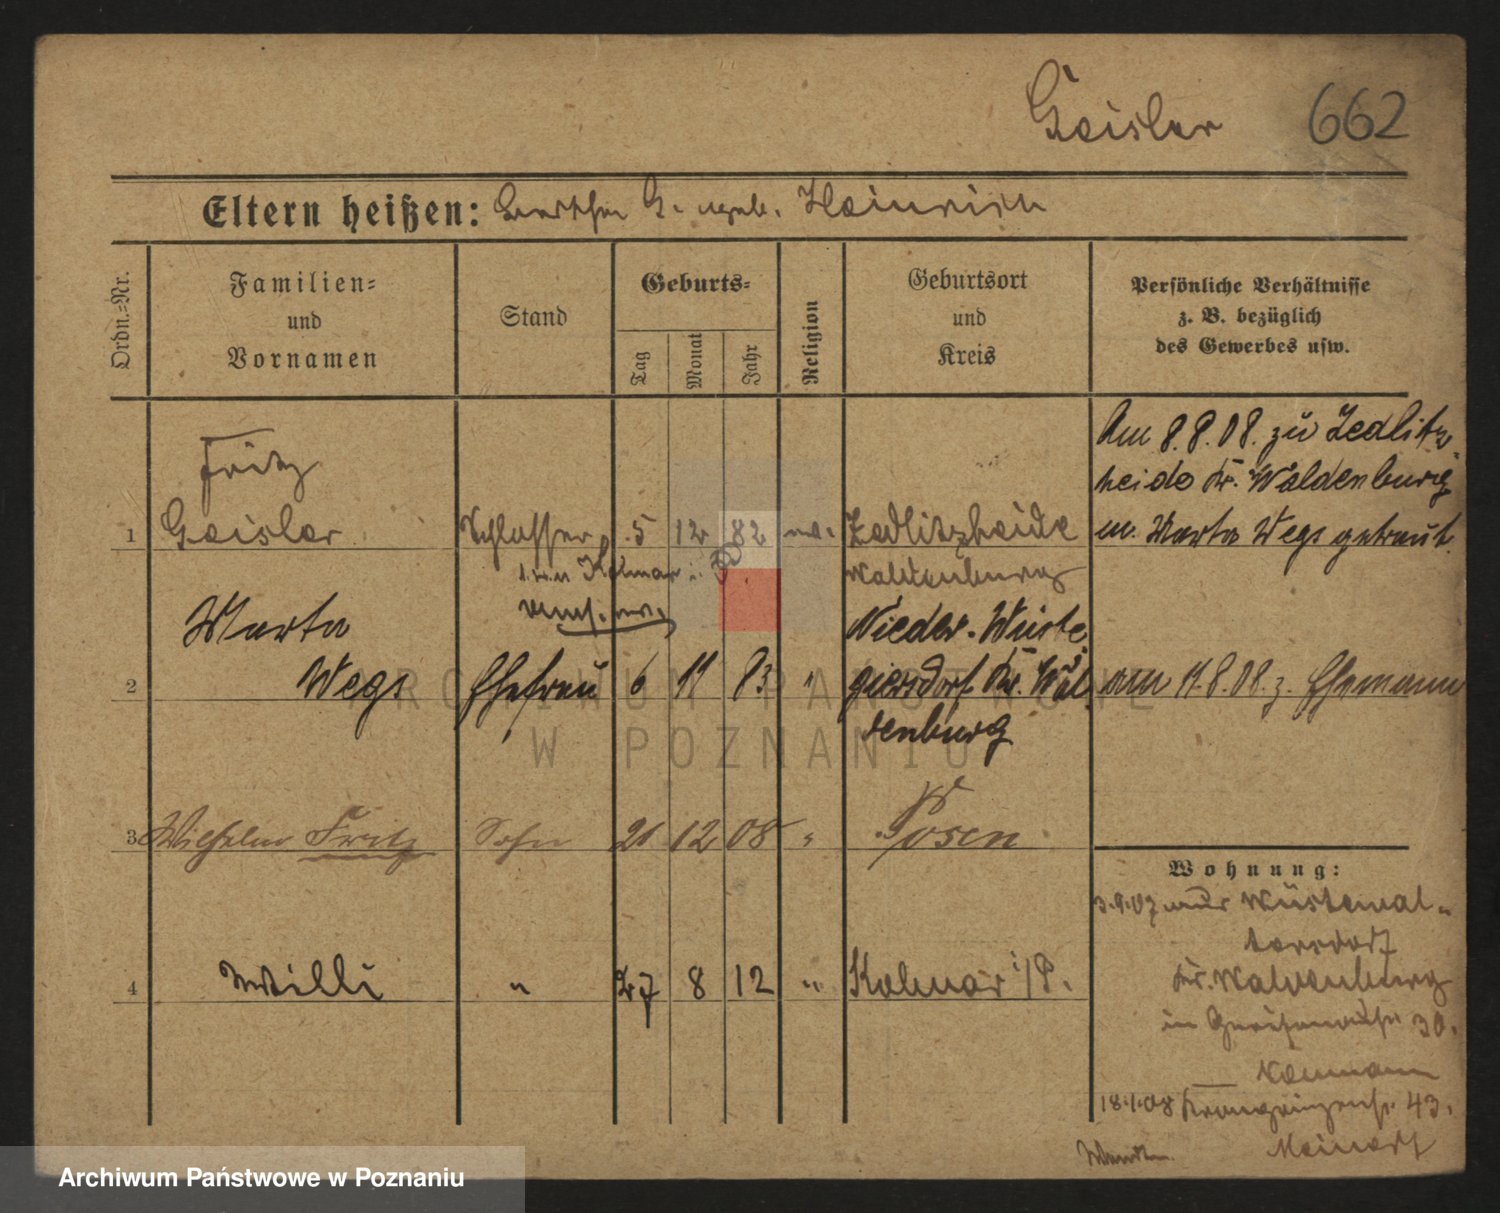 Geisler 662
Eltern heißen: G. geb. Heinrich
Ordn.-Nr.
Familien-
und
Vornamen
Stand
Geburts-
Tag
Monat
Jahr
Religion
Geburtsort
und
Kreis
Persönliche Verhältnisse
z. B. bezüglich
des Gewerbes usw.
Am 8.8.08. zu Zedlitz-
heide Kr. Waldenburg
m. Marta Wegs getraut.
Fritz
1 Geisler Schlosser 5 12 82 Zedlitzheide
Kolmar i. P. Waldenburg
Marta Nieder-Wüste
2 Wegs Ehefrau 6 11 83 " giersdorf Kr. Wal am 11.8.08. z. Ehemann
denburg
3 Wilhelm Fritz Sohn 21 12 08 " Posen
4 Willi " 27 8 12 " Kolmar i/P.
Wohnung:
3.9.07 Wüstewal-
tersdorf
Kr. Waldenburg
in 30.
Naumann
18.1.08 43.
Meinert
ARCHIWUM PAŃSTWOWE
W POZNANIU
Archiwum Państwowe w Poznaniu